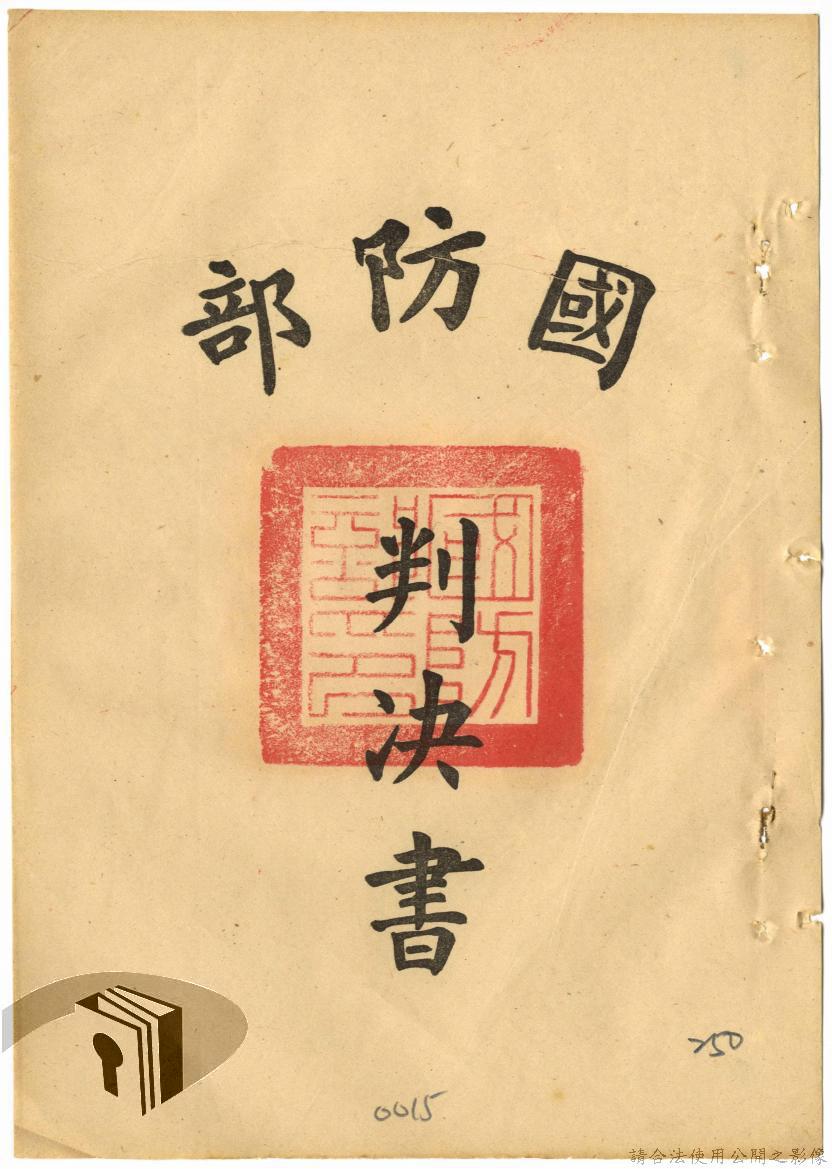 國防部
判決書
250
0015
請合法使用公開之影像